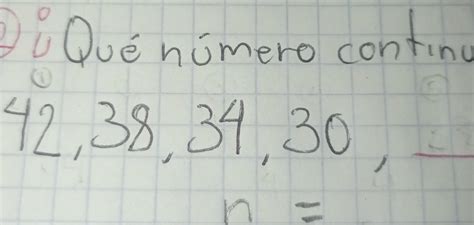 ¿Qué número continu
①
42, 38, 34, 30, __
n =